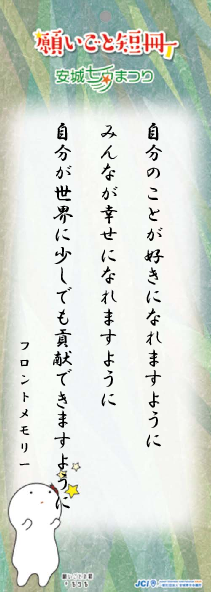 願いごと短冊
安城七夕まつり
自分のことが好きになれますように
みんなが幸せになれますように
自分が世界に少しでも貢献できますように
フロントメモリー
JCI